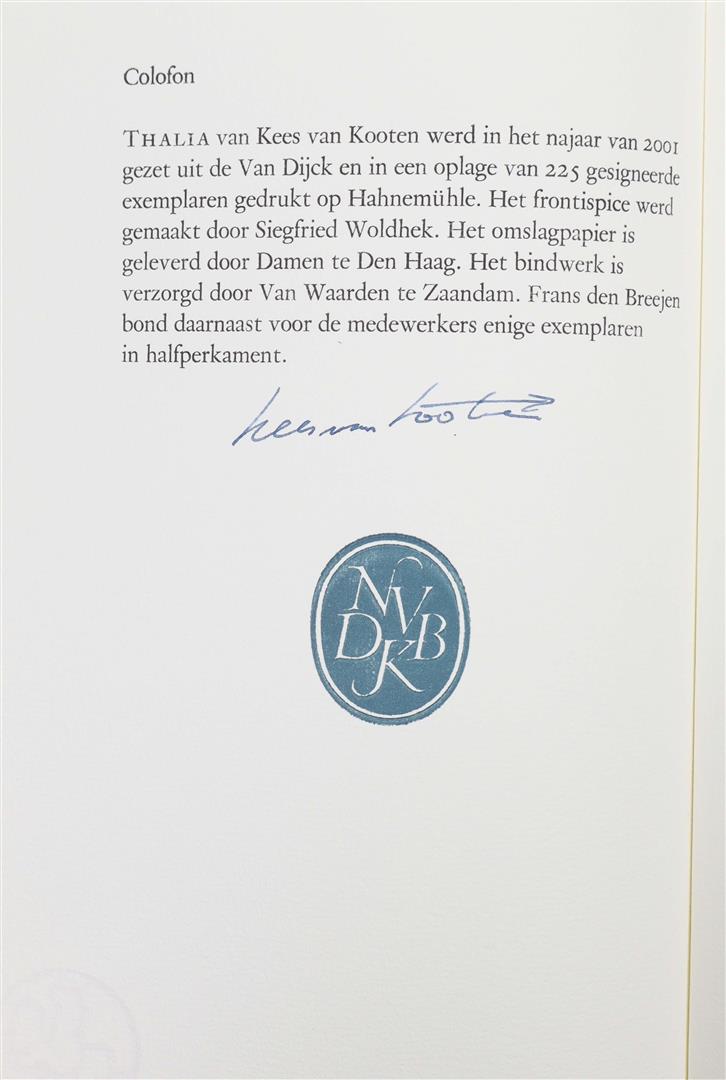 Colofon
THALIA van Kees van Kooten werd in het najaar van 2001
gezet uit de Van Dijck en in een oplage van 225 gesigneerde
exemplaren gedrukt op Hahnemühle. Het frontispice werd
gemaakt door Siegfried Woldhek. Het omslagpapier is
geleverd door Damen te Den Haag. Het bindwerk is
verzorgd door Van Waarden te Zaandam. Frans den Breejen
bond daarnaast voor de medewerkers enige exemplaren
in halfperkament.
Kees van Kooten
NV
DKB